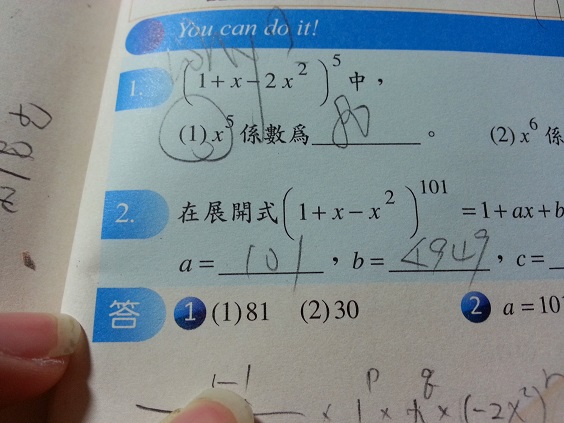 You can do it!
1. (1+x-2x²)⁵中，
(1)x⁵係數為 80 。 (2)x⁶係
2. 在展開式(1+x-x²)¹⁰¹=1+ax+b
a= 101 ，b= 4949 ，c=
答 1 (1)81 (2)30 2 a=10